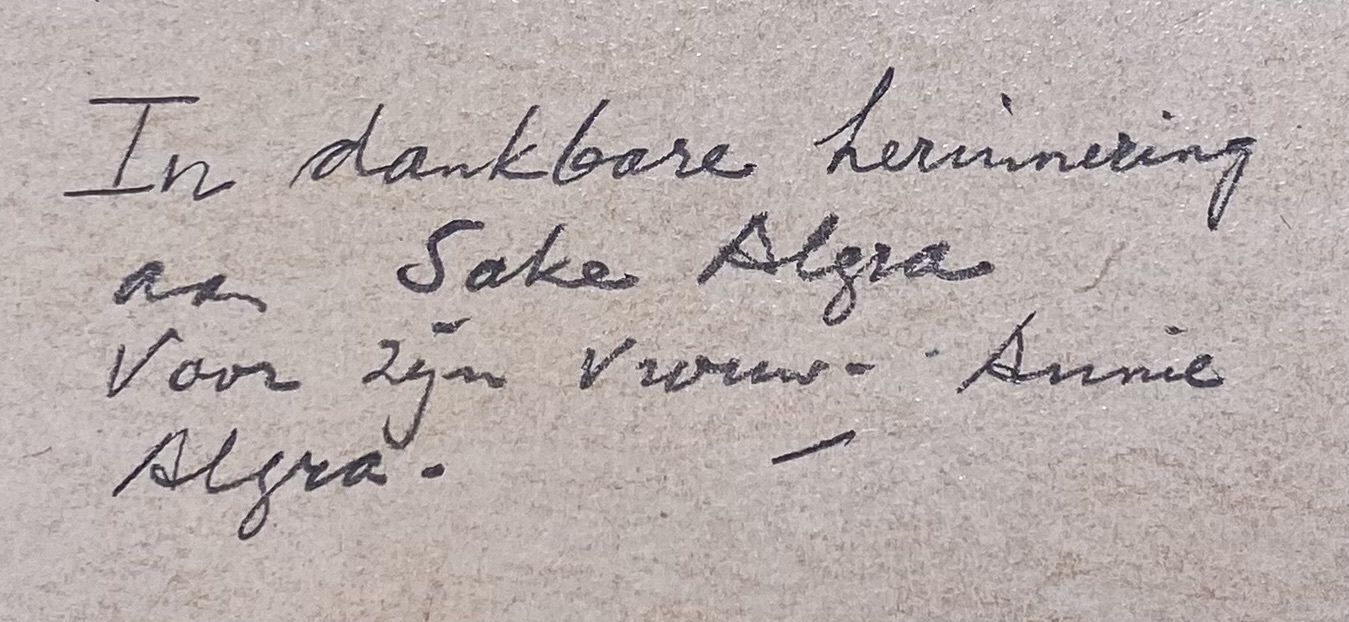 In dankbare herinnering
aan Sake Algra
Voor zijn vrouw - Annie
Algra.